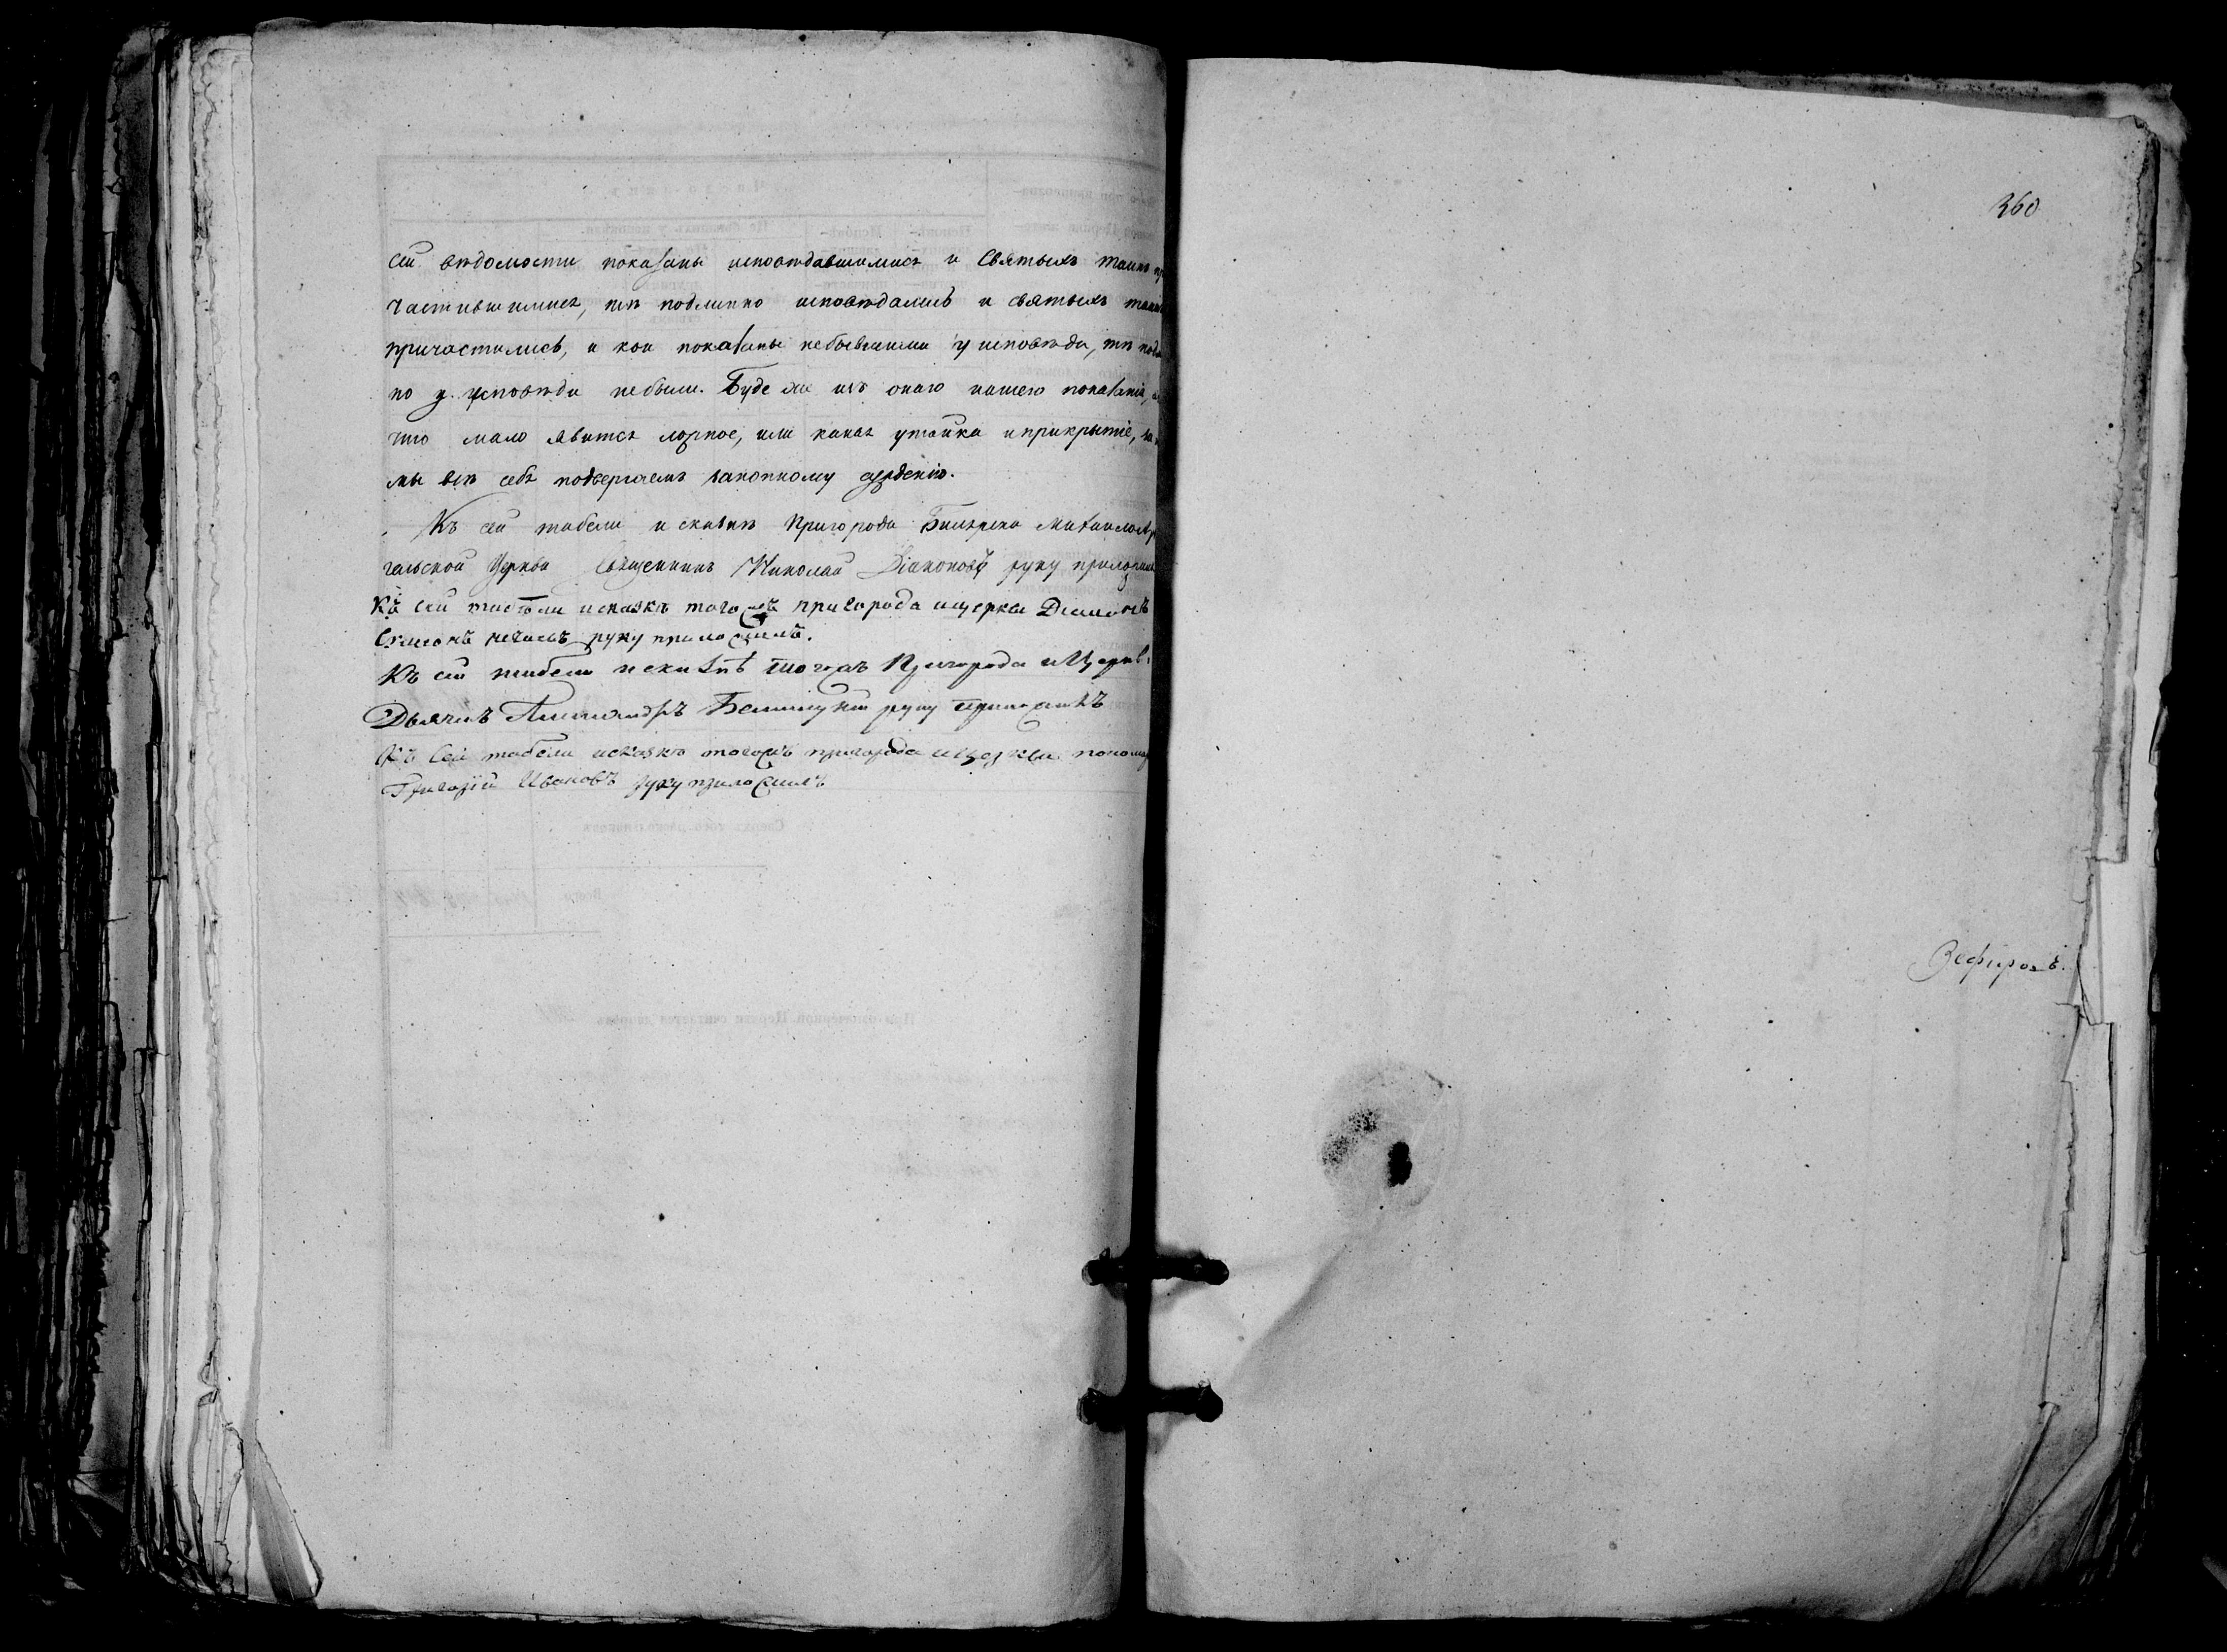 360
сей вѣдомости показаны исповѣдавшимися и Святыхъ таинъ
частившимися, тѣ подлинно исповѣдались и святыхъ таинъ
причастились, и кои показаны небывшими у исповѣди, тѣ подл
но у исповѣди небыли. Буде же изъ онаго нашего показанія,
что мало явится ложное, или какая утайка и прикрытіе, за
мы всѣ себя подвергаемъ законному сужденію.
Къ сей табели и сказкѣ Пригорода Билярска МихаилоАр
гельской Церкви Священникъ Николай Діаконовъ руку приложилъ
Къ сей табели исказкѣ тогожъ пригорода ицеркви Діаконъ
руку приложилъ.
Къ сей табели исказкѣ тогожъ Пригорода иЦеркви
Дьячекъ Александръ руку приложилъ
Къ Сей табели исказкѣ тогожъ пригорода иЦеркви понома
Григорій Ивановъ руку приложилъ
Зефировъ.